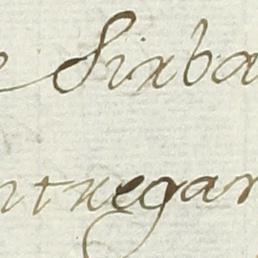 e Sirba
ntregar